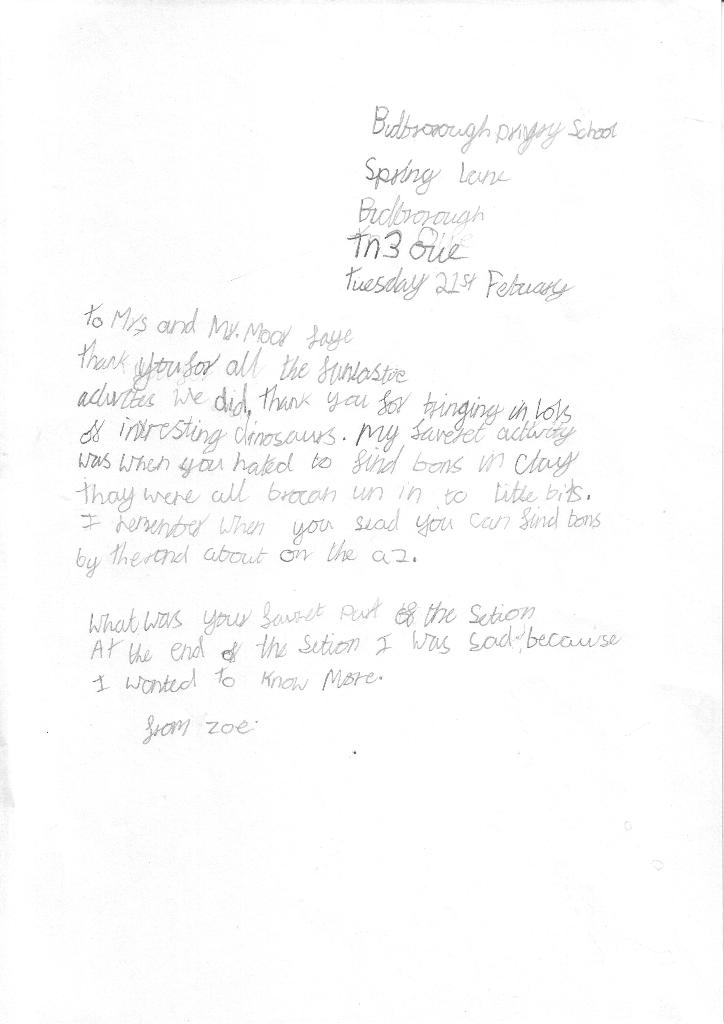 Bidbrorough primary School
Spring Lane
Bidbrorough
Tn3 0ue
Tuesday 21st Febuary
to Mrs and Mr. Moor
thank you for all the funtastic
activites we did, thank you for bringing in lots
of intresting dinosaurs. My faveret activity
was when you hated to find bons in clay
thay were all brocan un in to little bits.
I remember when you sead you can find bons
by the and about on the
What was your favret part of the Setion
At the end of the Setion I was sad because
I wanted to know More.
from zoe